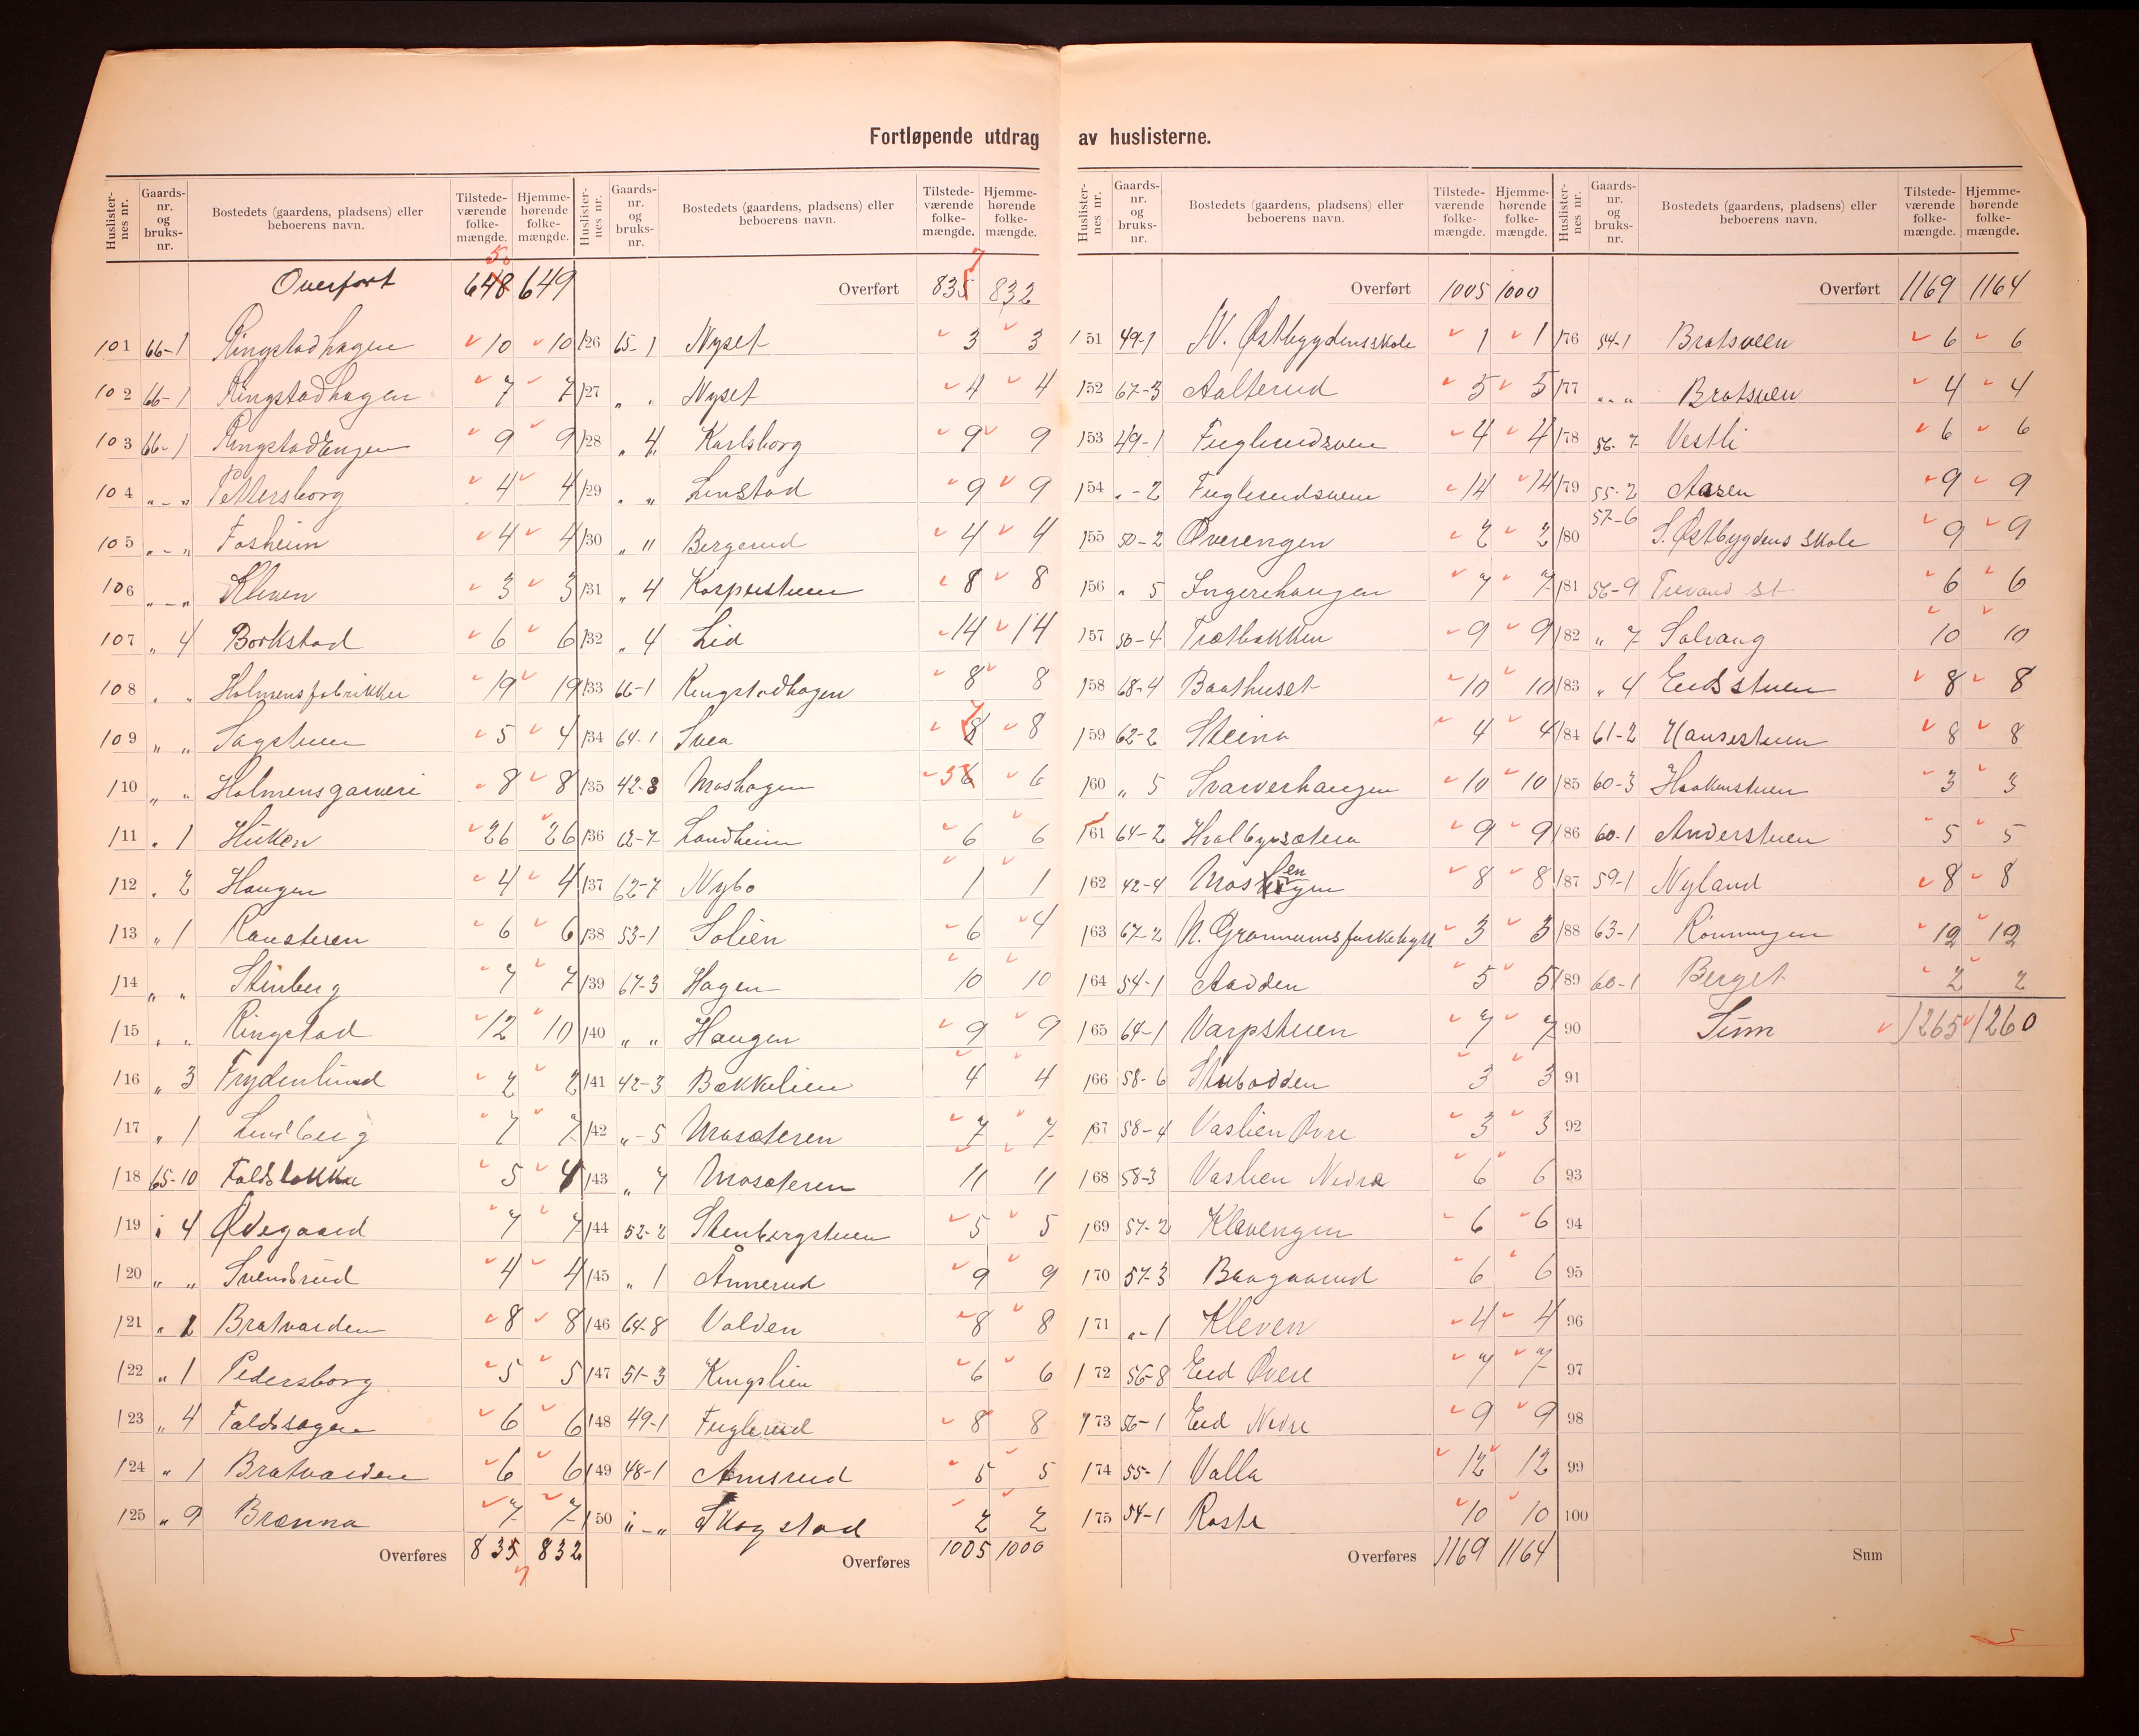 Fortløpende utdrag av huslisterne.
Huslisternes nr. Gaards-nr. og bruks-nr. Bostedets (gaardens, pladsens) eller beboerens navn. Tilstede-værende folke-mængde. Hjemme-hørende folke-mængde.
Overført 648 50 649
101 66-1 Ringstadhagen 10 10
102 66-1 Ringstadhagen 7 7
103 66-1 RingstadEngen 9 9
104 „-„ Pettersborg 4 4
105 „-„ Fosheim 4 4
106 „-„ Kleven 3 3
107 „ 4 Borkstad 6 6
108 „ „ Holmensfabrikker 19 19
109 „ „ Sagstuen 5 4
110 „ „ Holmensgarveri 8 8
111 „ 1 26 26
112 „ 2 Haugen 4 4
113 „ 1 6 6
114 „ „ Stenberg 7 7
115 „ „ Ringstad 12 10
116 „ 3 Frydenlund 2 2
117 „ 1 Lundberg 7 7
118 65-10 Foldsløkka 5 4
119 „ 4 Ødegaard 7 7
120 „ „ Svendsrud 4 4
121 „ 1 Bratvarden 8 8
122 „ 1 Pedersborg 5 5
123 „ 4 Foldssagen 6 6
124 „ 1 Bratvarden 6 6
125 „ 9 Brænna 7 7
Overføres 835 7 832
Huslisternes nr. Gaards-nr. og bruks-nr. Bostedets (gaardens, pladsens) eller beboerens navn. Tilstede-værende folke-mængde. Hjemme-hørende folke-mængde.
Overført 835 7 832
126 65-1 Nyset 3 3
127 „ „ Nyset 4 4
128 „ 4 Karlsborg 9 9
129 „ „ Lenstad 9 9
130 „ „ Bergerud 4 4
131 „ 4 Kasperstuen 8 8
132 „ 4 Lid 14 14
133 66-1 Ringstadhagen 8 8
134 64-1 Svea 8 7 8
135 42-3 Moshagen 6 5 6
136 62-7 Landheim 6 6
137 62-7 Nybo 1 1
138 53-1 Solien 6 4
139 67-3 Hagen 10 10
140 „ „ Haugen 9 9
141 42-3 Bækkelien 4 4
142 „-5 Mosæteren 7 7
143 „ 7 Mosæteren 11 11
144 52-2 Stenbergstuen 5 5
145 „ 1 Ånnerud 9 9
146 64-8 Volden 8 8
147 51-3 Kingslien 6 6
148 49-1 Fuglerud 8 8
149 48-1 Amsrud 5 5
150 „-„ Skogstad 2 2
Overføres 1005 1000
Huslisternes nr. Gaards-nr. og bruks-nr. Bostedets (gaardens, pladsens) eller beboerens navn. Tilstede-værende folke-mængde. Hjemme-hørende folke-mængde.
Overført 1005 1000
151 49-1 N. Østbygdensskole 1 1
152 67-3 Aalterud 5 5
153 49-1 Fuglerudsveen 4 4
154 „-2 Fuglerudsveen 14 14
155 50-2 Øverengen 2 2
156 „ 5 Ingerehaugen 7 7
157 50-4 Trætbakken 9 9
158 68-4 Baathuset 10 10
159 62-2 Steina 4 4
160 „ 5 Svarverhaugen 10 10
161 64-2 Hvalbysætera 9 9
162 42-4 8 8
163 67-2 3 3
164 54-1 Aadden 5 5
165 64-1 Varpstuen 7 7
166 58-6 Stubadden 3 3
167 58-4 Vaslien Øvre 3 3
168 58-3 Vaslien Nedre 6 6
169 57-2 Klevengen 6 6
170 57-3 Baagaarud 6 6
171 „-1 Kleven 4 4
172 56-8 Eid Øvre 7 7
173 56-1 Eid Nedre 9 9
174 55-1 Valla 12 12
175 54-1 Roste 10 10
Overføres 1169 1164
Huslisternes nr. Gaards-nr. og bruks-nr. Bostedets (gaardens, pladsens) eller beboerens navn. Tilstede-værende folke-mængde. Hjemme-hørende folke-mængde.
Overført 1169 1164
176 54-1 Bratsveen 6 6
177 „-„ Bratsveen 4 4
178 56-7 Vestli 6 6
179 55-2 Aasen 9 9
180 57-6 S. Østbygdens skole 9 9
181 56-9 Trevand st 6 6
182 „ 7 Solvang 10 10
183 „ 4 Eidsstuen 8 8
184 61-2 Hansestuen 8 8
185 60-3 Haakenstuen 3 3
186 60-1 Anderstuen 5 5
187 59-1 Nyland 8 8
188 63-1 Rønningen 12 12
189 60-1 Berget 2 2
90 Sum 1265 1260
91
92
93
94
95
96
97
98
99
100
Sum